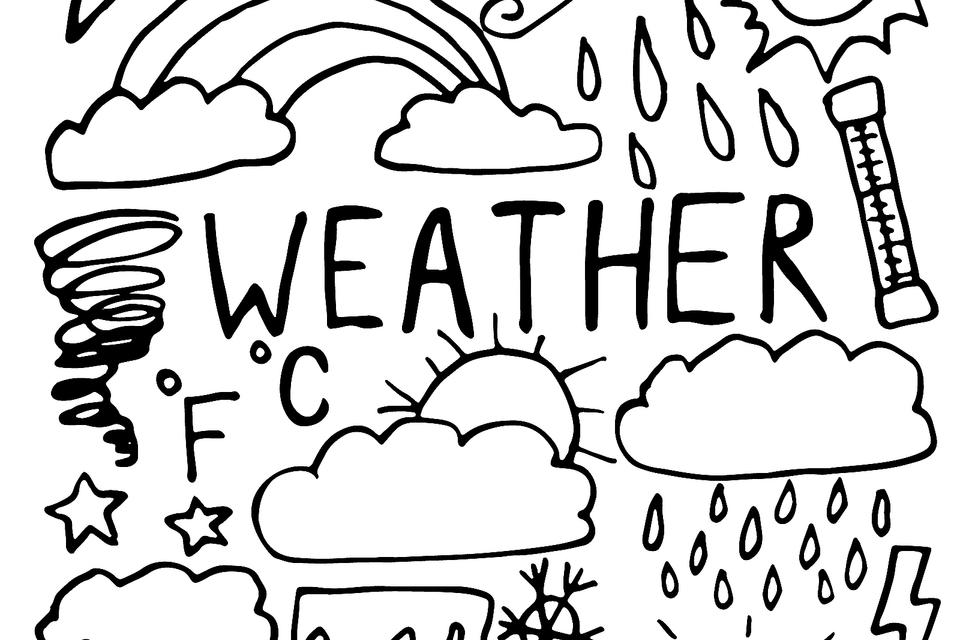 WEATHER
°C
°F